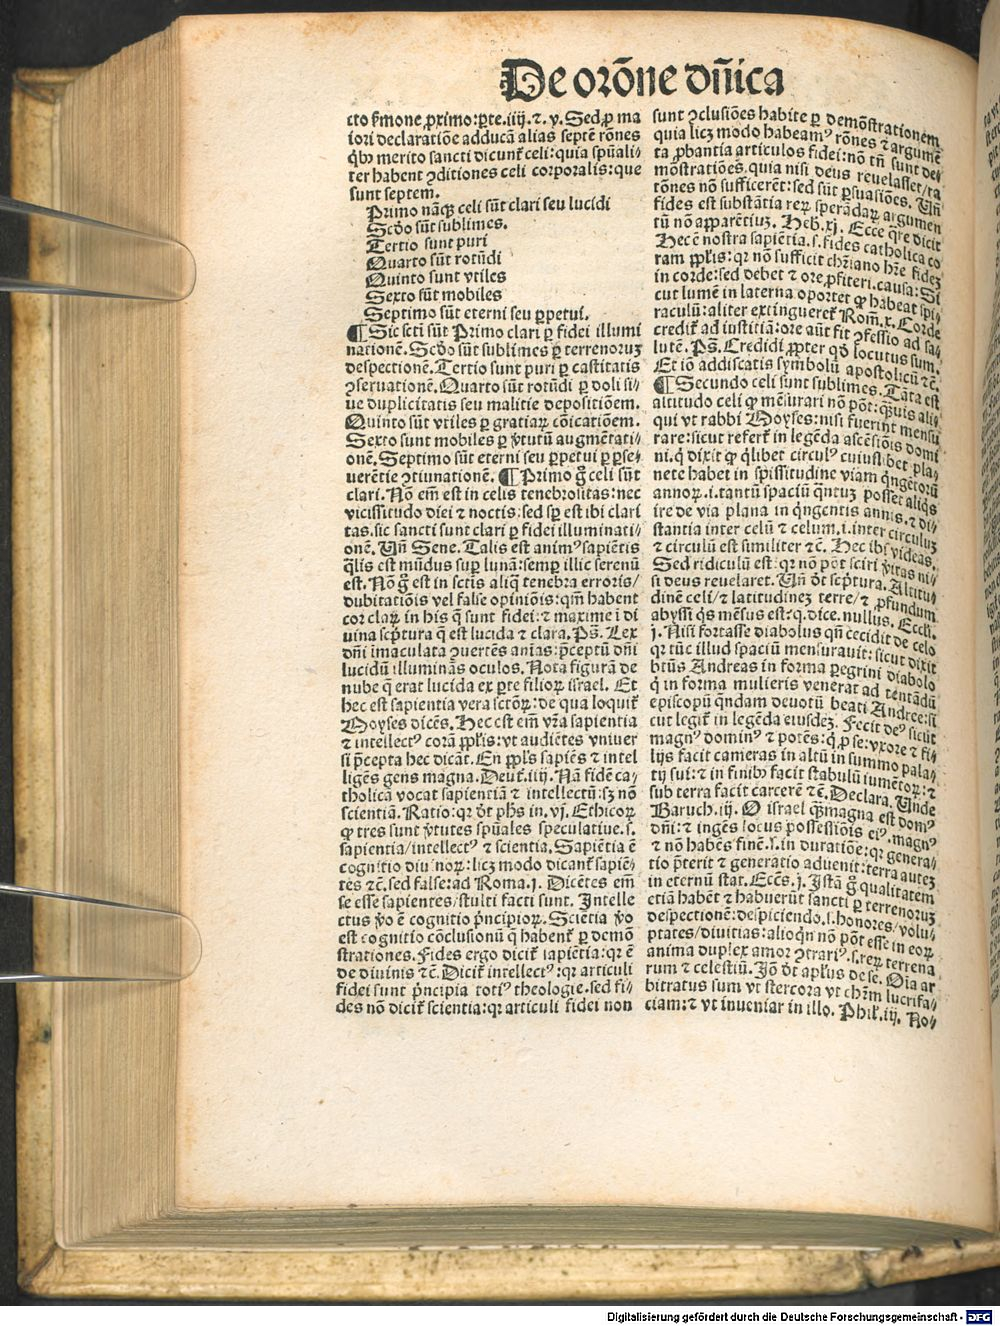 De orōne dn̄ica
cto ẜmone ꝓximo: ꝑte. iiij. ⁊. v. Sed ꝓ ma
iori declaratiōe adducā alias septē rōnes
q̇bꝰ merito sancti dicunt᷑ celi: quia spūali⸗
ter habent ꝯditiones celi corporalis: que
sunt septem.
Primo nāqꝫ celi sūt clari seu lucidi
Scd̄o sūt sublimes.
Tertio sunt puri
Quarto sūt rotūdi
Quinto sunt vtiles
Sexto sūt mobiles
Septimo sūt eterni seu ꝑpetui.
¶ Sic scti sūt Primo clari ꝑ fidei illumi
nationē. Scd̄o sūt sublimes ꝑ terrenoruꝫ
despectionē. Tertio sunt puri ꝑ castitatis
ꝯseruationē. Quarto sūt rotūdi ꝑ doli si⸗
ue duplicitatis seu malitie depositiōem.
Quinto sūt vtiles ꝑ gratiaꝝ cōicatiōem.
Sexto sunt mobiles ꝑ v̓tutū augmētati⸗
onē. Septimo sūt eterni seu ꝑpetui ꝑ ꝑse⸗
uerētie ꝯtinuationē. ¶ Primo g̊ celi sūt
clari. Nō em̄ est in celis tenebrositas: nec
vicissitudo diei ⁊ noctis: sed sꝑ est ibi clari
tas. sic sancti sunt clari ꝑ fidei illuminati⸗
onē. Vn̄ Sene. Talis est animꝰ sapiētis
q̄lis est mūdus suꝑ lunā: semꝑ illic serenū
est. Nō g̊ est in sctis aliq̄ tenebra erroris/
dubitatiōis vel false opiniōis: qm̄ habent
cor claꝝ in his q̄ sunt fidei: ⁊ maxime ī di
uina scp̄tura q̄ est lucida ⁊ clara. Ps̄. Lex
dn̄i īmaculata ꝯuertēs aīas: p̄ceptū dn̄i
lucidū illuminās oculos. Nota figurā de
nube q̄ erat lucida ex ꝑte filioꝝ israel. Et
hec est sapientia vera sctōꝝ: de qua loquit᷑
Moyses dicēs. Hec est em̄ vr̄a sapientia
⁊ intellectꝰ corā ppl̓is: vt audiētes vniuer
si p̄cepta hec dicāt. En ppl̓s sapiēs ⁊ intel
ligēs gens magna. Deut̓. iiij. Nā fidē ca⸗
tholicā vocat sapientiā ⁊ intellectū: sꝫ nō
scientiā. Ratio: qꝛ d̓t ph̄s in. vj. Ethicoꝝ
ꝙ tres sunt v̓tutes spūales speculatiue. s.
sapientia/intellectꝰ ⁊ scientia. Sapiētia ē
cognitio diuinoꝝ: licꝫ modo dicant᷑ sapiē⸗
tes ⁊c̄. sed false: ad Roma. j. Dicētes em̄
se esse sapientes/stulti facti sunt. Intelle
ctus v̓o ē cognitio p̓ncipioꝝ. Scīetia v̓o
est cognitio cōclusionū q̄ habent᷑ ꝑ demō
strationes. Fides ergo dicit᷑ sapiētia: qꝛ ē
de diuinis ⁊c̄. Dicit᷑ intellectꝰ: qꝛ articuli
fidei sunt p̓ncipia totiꝰ theologie. sed fi⸗
des nō dicit᷑ scientia: qꝛ articuli fidei non
sunt ꝯclusiōes habite ꝑ demōstrationem
quia licꝫ modo habeamꝰ rōnes ⁊ argumē
ta ꝓbantia articulos fidei: nō tn̄ sunt de⸗
mōstratiōes. quia nisi deus reuelasset/ra
tōnes nō sufficerēt: sed sūt ꝑsuasiōes. Vn̄
fides est substātia reꝝ sperādaꝝ argumen
tū nō apparētiuꝫ. Heb̓. xj. Ecce q̄re dicit
Hec ē nostra sapiētia. s. fides catholica co
ram ppl̓is: qꝛ nō sufficit chr̄iano hr̄e fidez
in corde: sed debet ⁊ ore ꝓfiteri. causa: Si
cut lumē in laterna oportet ꝙ habeat spi⸗
raculū: aliter extingueret᷑. Rom̄. x. Corde
credit᷑ ad iustitiā: ore aūt fit ꝯfessio ad sa⸗
lutē. Ps̄. Credidi ꝓpter qd̓ locutus sum.
Et iō addiscatis symbolū apostolicū ⁊c̄.
¶ Secundo celi sunt sublimes. Tāta est
altitudo celi ꝙ mēsurari nō pōt: q̄uis ali⸗
qui vt rabbi Moyses: nisi fuerint mensu
rare: sicut refert᷑ in legēda ascēsiōis domi
ni. q̇ dixit ꝙ q̇libet circulꝰ cuiuslibet pla⸗
nete habet in spissitudine viam q̇ngētorū
annoꝝ. i. tantū spaciū q̄ntuꝫ posset aliq̇s
ire de via plana in q̇ngentis annis. ⁊ di⸗
stantia inter celū ⁊ celum. i. inter circuluꝫ
⁊ circulū est similiter ⁊c̄. Hec ibi videas.
Sed ridiculū est: qꝛ nō pōt sciri v̓itas ni⸗
si deus reuelaret. Vn̄ d̓t scp̄tura. Altitu⸗
dinē celi/⁊ latitudinez terre/⁊ ꝓfundum
abyssi q̇s mēsus est: q. dice. nullus. Eccl̓i.
j. Nisi fortasse diabolus qn̄ cecidit de celo
qꝛ tūc illud spaciū mensurauit: sicut dixit
btūs Andreas in forma ꝑegrini diabolo
q̇ in forma mulieris venerat ad tentādū
episcopū q̄ndam deuotū beati Andree: si
cut legit᷑ in legēda eiusdeꝫ. Fecit deꝰ sicut
magnꝰ dominꝰ ⁊ potēs: q̇ ꝓ se: vxore ⁊ fi⸗
lijs facit cameras in altū in summo pala⸗
tij sui: ⁊ in finibꝰ facit stabulū iumētoꝝ: ⁊
sub terra facit carcerē ⁊c̄. Declara. Vnde
Baruch. iij. O israel q̄ꝫ magna est domꝰ
dn̄i: ⁊ ingēs locus possessiōis eiꝰ. magnꝰ
⁊ nō habēs finē. s. in duratiōe: qꝛ genera⸗
tio p̄terit ⁊ generatio aduenit: terra auteꝫ
in eternū stat. Ecc̄s. j. Istā g̊ qualitatem
etiā habēt ⁊ habuerūt sancti ꝑ terrenoruꝫ
despectionē: despiciendo. s. honores/volu⸗
ptates/diuitias: alioq̇n nō pōt esse in eoꝝ
anima duplex amor ꝯtrariꝰ. s. reꝝ terrena
rum ⁊ celestiū. Iō d̓t apl̓us de se. Oīa ar
bitratus sum vt stercora vt chr̄m lucrifa⸗
ciam: ⁊ vt inueniar in illo. Phil̓. iij. No⸗
Digitalisierung gefördert durch die Deutsche Forschungsgemeinschaft - DFG